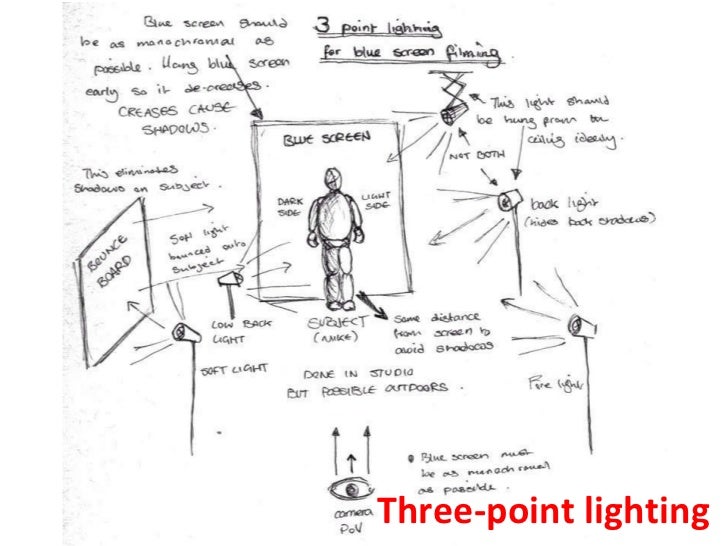 3 point lighting
for blue screen filming.
Blue screen should
be as monochromal as
possible. Hang blue screen
early so it de-creases.
CREASES CAUSE
SHADOWS.
This light should
be hung from the
ceiling ideally.
NOT BOTH
BLUE SCREEN
DARK
SIDE
LIGHT
SIDE
back light
(hides back shadows)
This eliminates
shadows on subject.
BOUNCE
BOARD
Soft light
bounced onto
subject
LOW BACK
LIGHT
SOFT LIGHT
SUBJECT
(MIKE)
Some distance
from screen to
avoid shadows
DONE IN STUDIO
BUT POSSIBLE OUTDOORS.
light
Blue screen must
be as monochromal
as possible.
camera
PoV
Three-point lighting